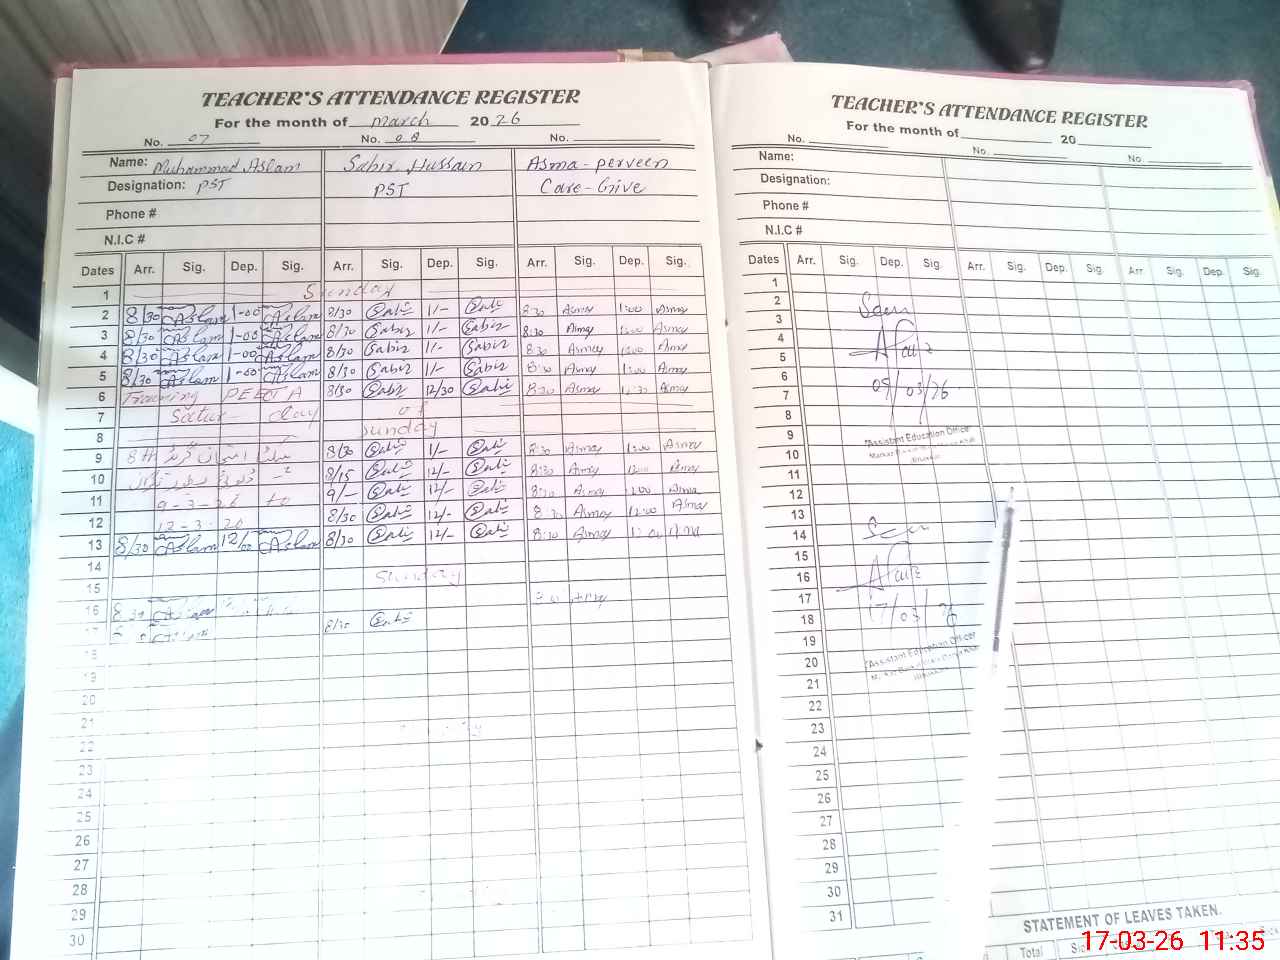 TEACHER'S ATTENDANCE REGISTER
For the month of March 2026
No. 07 No. 08 No.
Name: Muhammad Aslam Sabir Hussain Asma-perveen
Designation: PST PST Care-Give
Phone #
N.I.C #
Dates Arr. Sig. Dep. Sig. Arr. Sig. Dep. Sig. Arr. Sig. Dep. Sig.
1 Sunday
2 8/30 Aslam 1-00 Aslam 8/30 Sabir 1/- Sabir 8:30 Asma 1:00 Asma
3 8/30 Aslam 1-00 Aslam 8/30 Sabir 1/- Sabir 8:30 Asma 1:00 Asma
4 8/30 Aslam 1-00 Aslam 8/30 Sabir 1/- Sabir 8:30 Asma 1:00 Asma
5 8/30 Aslam 1-00 Aslam 8/30 Sabir 1/- Sabir 8:30 Asma 1:00 Asma
6 Training PEETA 8/30 Sabir 12/30 Sabir 8:30 Asma 12:30 Asma
7 Satur day of
8 Sunday
9 8th 8/30 Sabir 1/- Sabir 8:30 Asma 1:00 Asma
10 8/15 Sabir 12/- Sabir 8:30 Asma 12:00 Asma
11 9-3- to 9/- Sabir 12/- Sabir 8:30 Asma 12:00 Asma
12 12-3- 8/30 Sabir 12/- Sabir 8:30 Asma 12:00 Asma
13 8/30 Aslam 12/00 Aslam 8/30 Sabir 12/- Sabir 8:30 Asma 12:00 Asma
14
15 Sunday
16 8/30 Aslam
17 Aslam 8/30 Sabir
18
19
20
21
22
23
24
25
26
27
28
29
30
TEACHER'S ATTENDANCE REGISTER
For the month of 20
No. No. No.
Name:
Designation:
Phone #
N.I.C #
Dates Arr. Sig. Dep. Sig. Arr. Sig. Dep. Sig. Arr. Sig. Dep. Sig.
1
2
3 Seen
4
5
6
7 09/03/26
8
9 Assistant Education Officer
10
11
12
13
14 Seen
15
16
17
18 17/03/26
19
20 Assistant Education Officer
21
22
23
24
25
26
27
28
29
30
31
STATEMENT OF LEAVES TAKEN.
Total
17-03-26 11:35